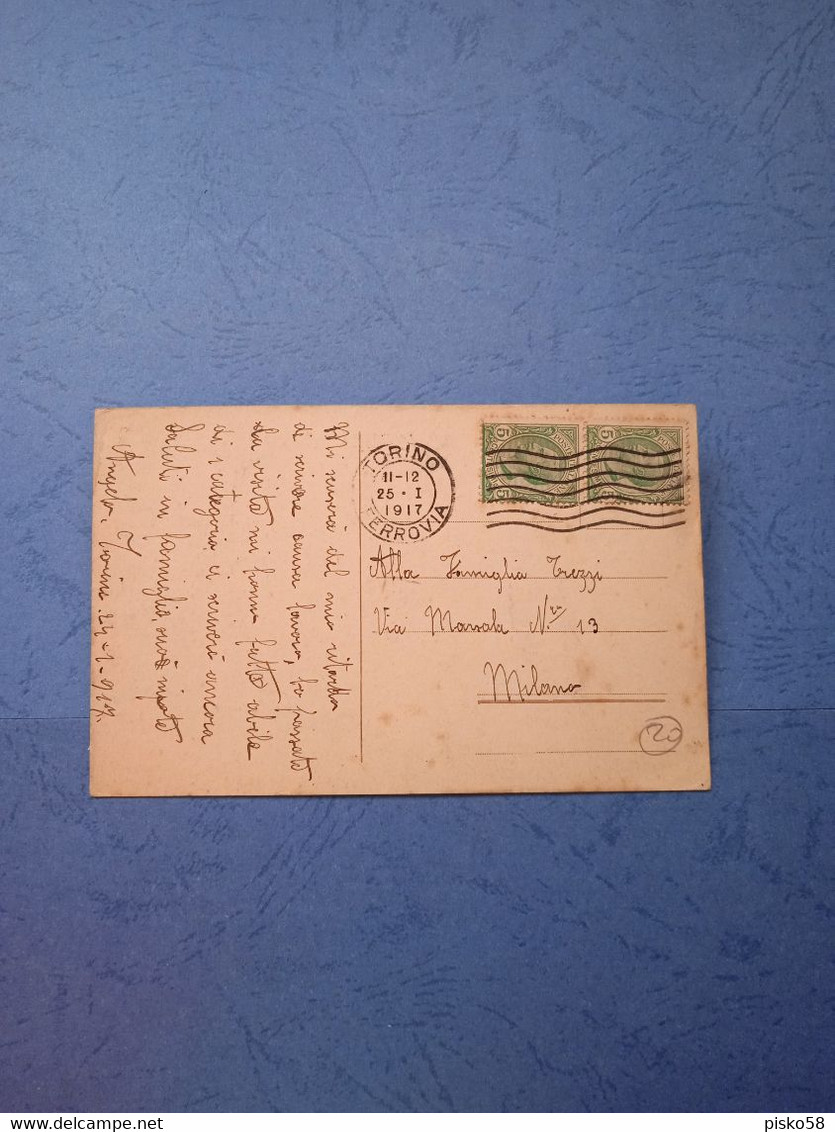 Mi scuserà del mio ritardo
di scrivere causa lavoro, ho passato
la visita mi hanno fatto abile
di 1 categoria vi scriverò ancora
Saluti in famiglia, suo nipote
Angelo. Torino 24-1-917
TORINO
11-12
25 · I
1917
FERROVIA
Alla Famiglia Trezzi
Via Marsala N.ro 13
Milano
20
pisko58